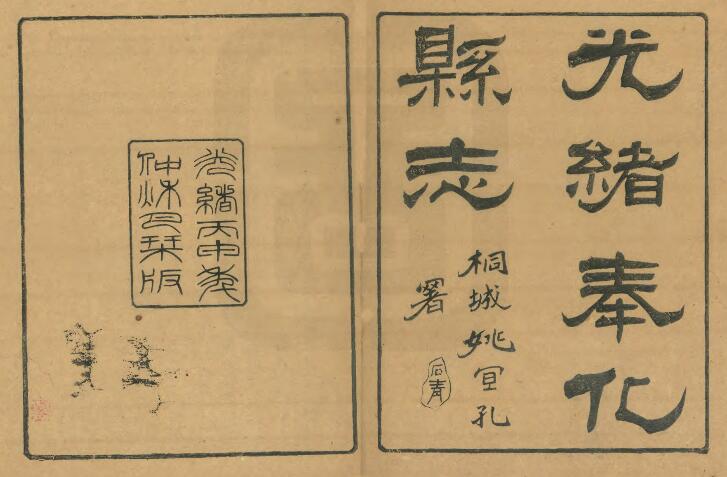 光緒奉化
縣志
桐城姚宣孔
署
光緒丙申秊
仲秌月栞版